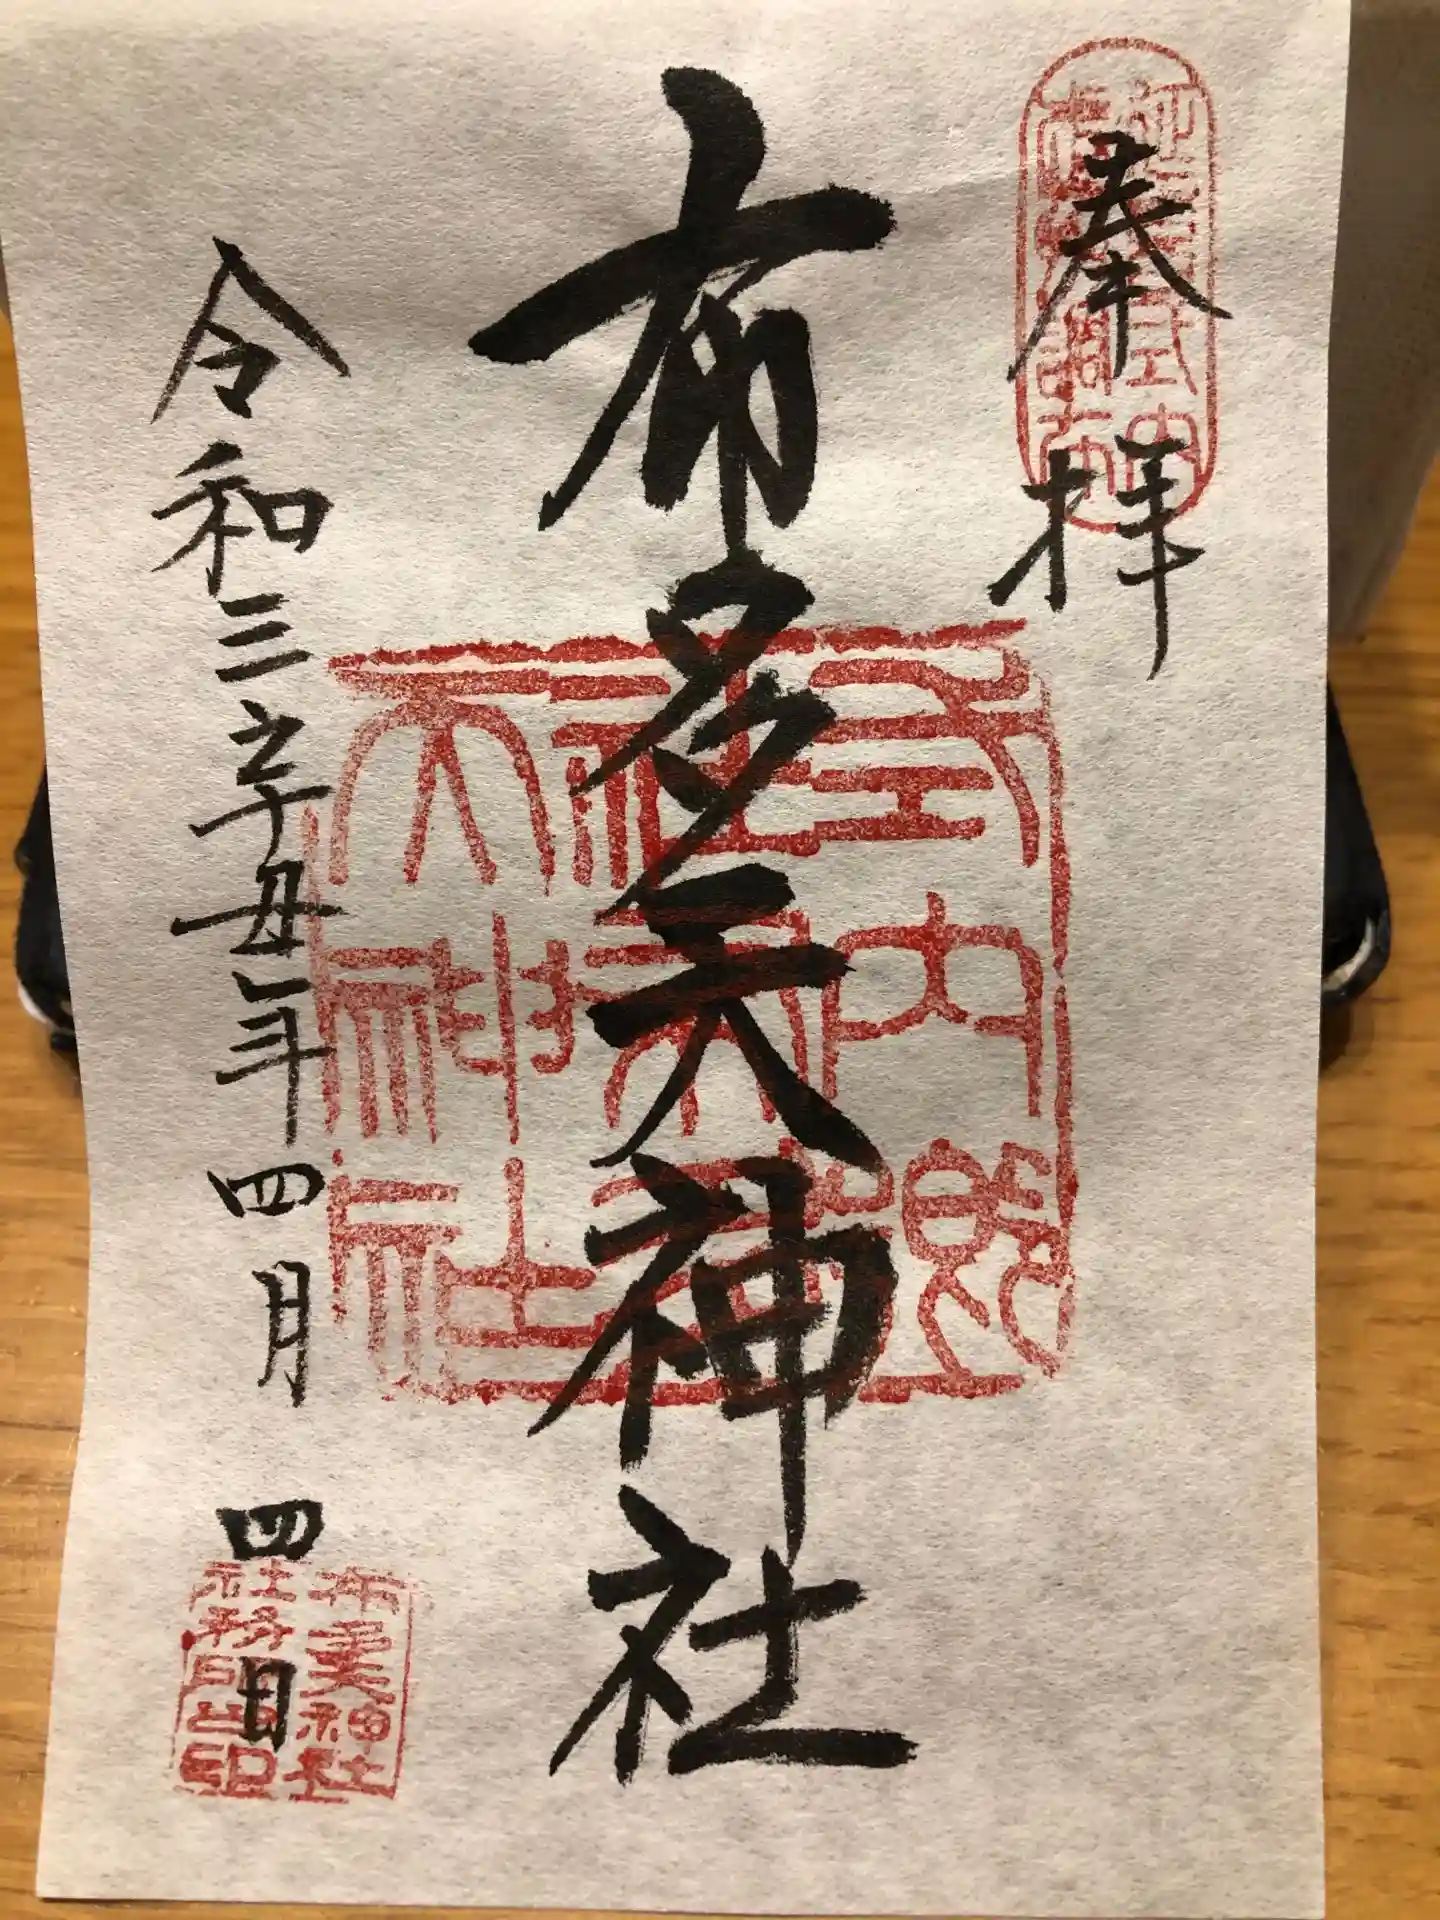 延喜式内
奉拝
布多天神社
式内郷
社布多
天神社
令和三辛丑年四月四日
布多天神社
社務所之印